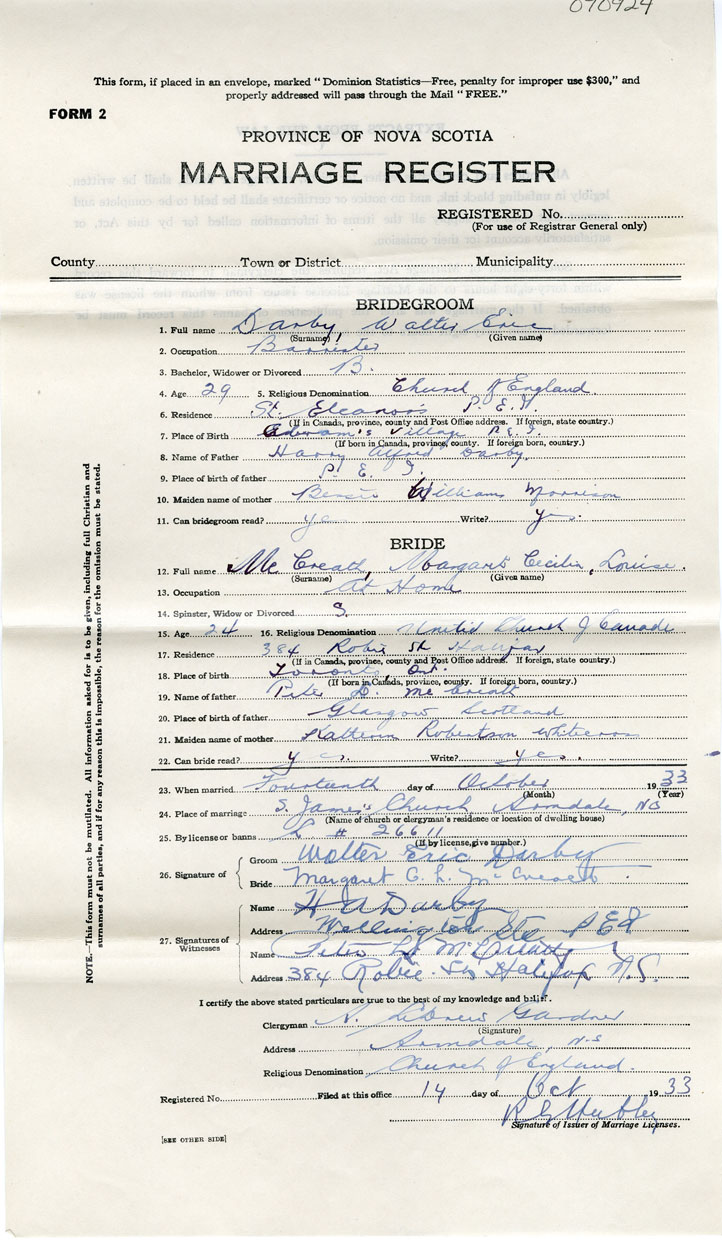 070924
This form, if placed in an envelope, marked "Dominion Statistics—Free, penalty for improper use $300," and
properly addressed will pass through the Mail "FREE."
FORM 2
PROVINCE OF NOVA SCOTIA
MARRIAGE REGISTER
REGISTERED No.
(For use of Registrar General only)
County Town or District Municipality
BRIDEGROOM
1. Full name Darby, Walter Eric
(Surname) (Given name)
2. Occupation Barrister
3. Bachelor, Widower or Divorced B.
4. Age 29 5. Religious Denomination Church of England
6. Residence St. Eleanors P.E.I.
(If in Canada, province, county and Post Office address. If foreign, state country.)
7. Place of Birth Village P.E.I.
(If born in Canada, province, county. If foreign born, country.)
8. Name of Father Harry Alfred Darby
9. Place of birth of father P. E. I.
10. Maiden name of mother Bessie William Morrison
11. Can bridegroom read? yes Write? yes.
BRIDE
12. Full name Mc Creath, Margaret Cecilia, Louise.
(Surname) (Given name)
13. Occupation At Home
14. Spinster, Widow or Divorced S.
15. Age 24 16. Religious Denomination United Church of Canada
17. Residence 384 Robie St Halifax
(If in Canada, province, county and Post Office address. If foreign, state country.)
18. Place of birth Toronto, Ont.
(If born in Canada, province, county. If foreign born, country.)
19. Name of father Peter Mc Creath
20. Place of birth of father Glasgow Scotland
21. Maiden name of mother Robertson Whitecross
22. Can bride read? yes. Write? yes.
23. When married Fourteenth day of October 1933
(Month) (Year)
24. Place of marriage S. James's Church Armdale, NS
(Name of church or clergyman's residence or location of dwelling house)
25. By license or banns L # 26611
(If by license, give number.)
26. Signature of Groom Walter Eric Darby
Bride Margaret C. L. McCreath
27. Signatures of Witnesses
Name H A Darby
Address Wellington Stn PEI
Name Peter McCreath
Address 384 Robie St Halifax N.S.
I certify the above stated particulars are true to the best of my knowledge and belief.
Clergyman N. Gardner
(Signature)
Address Armdale, N.S
Religious Denomination Church of England.
Registered No. Filed at this office 14 day of Oct 1933
Signature of Issuer of Marriage Licenses.
[SEE OTHER SIDE]
NOTE.—This form must not be mutilated. All information asked for is to be given, including full Christian and
surnames of all parties, and if for any reason this is impossible, the reason for the omission must be stated.